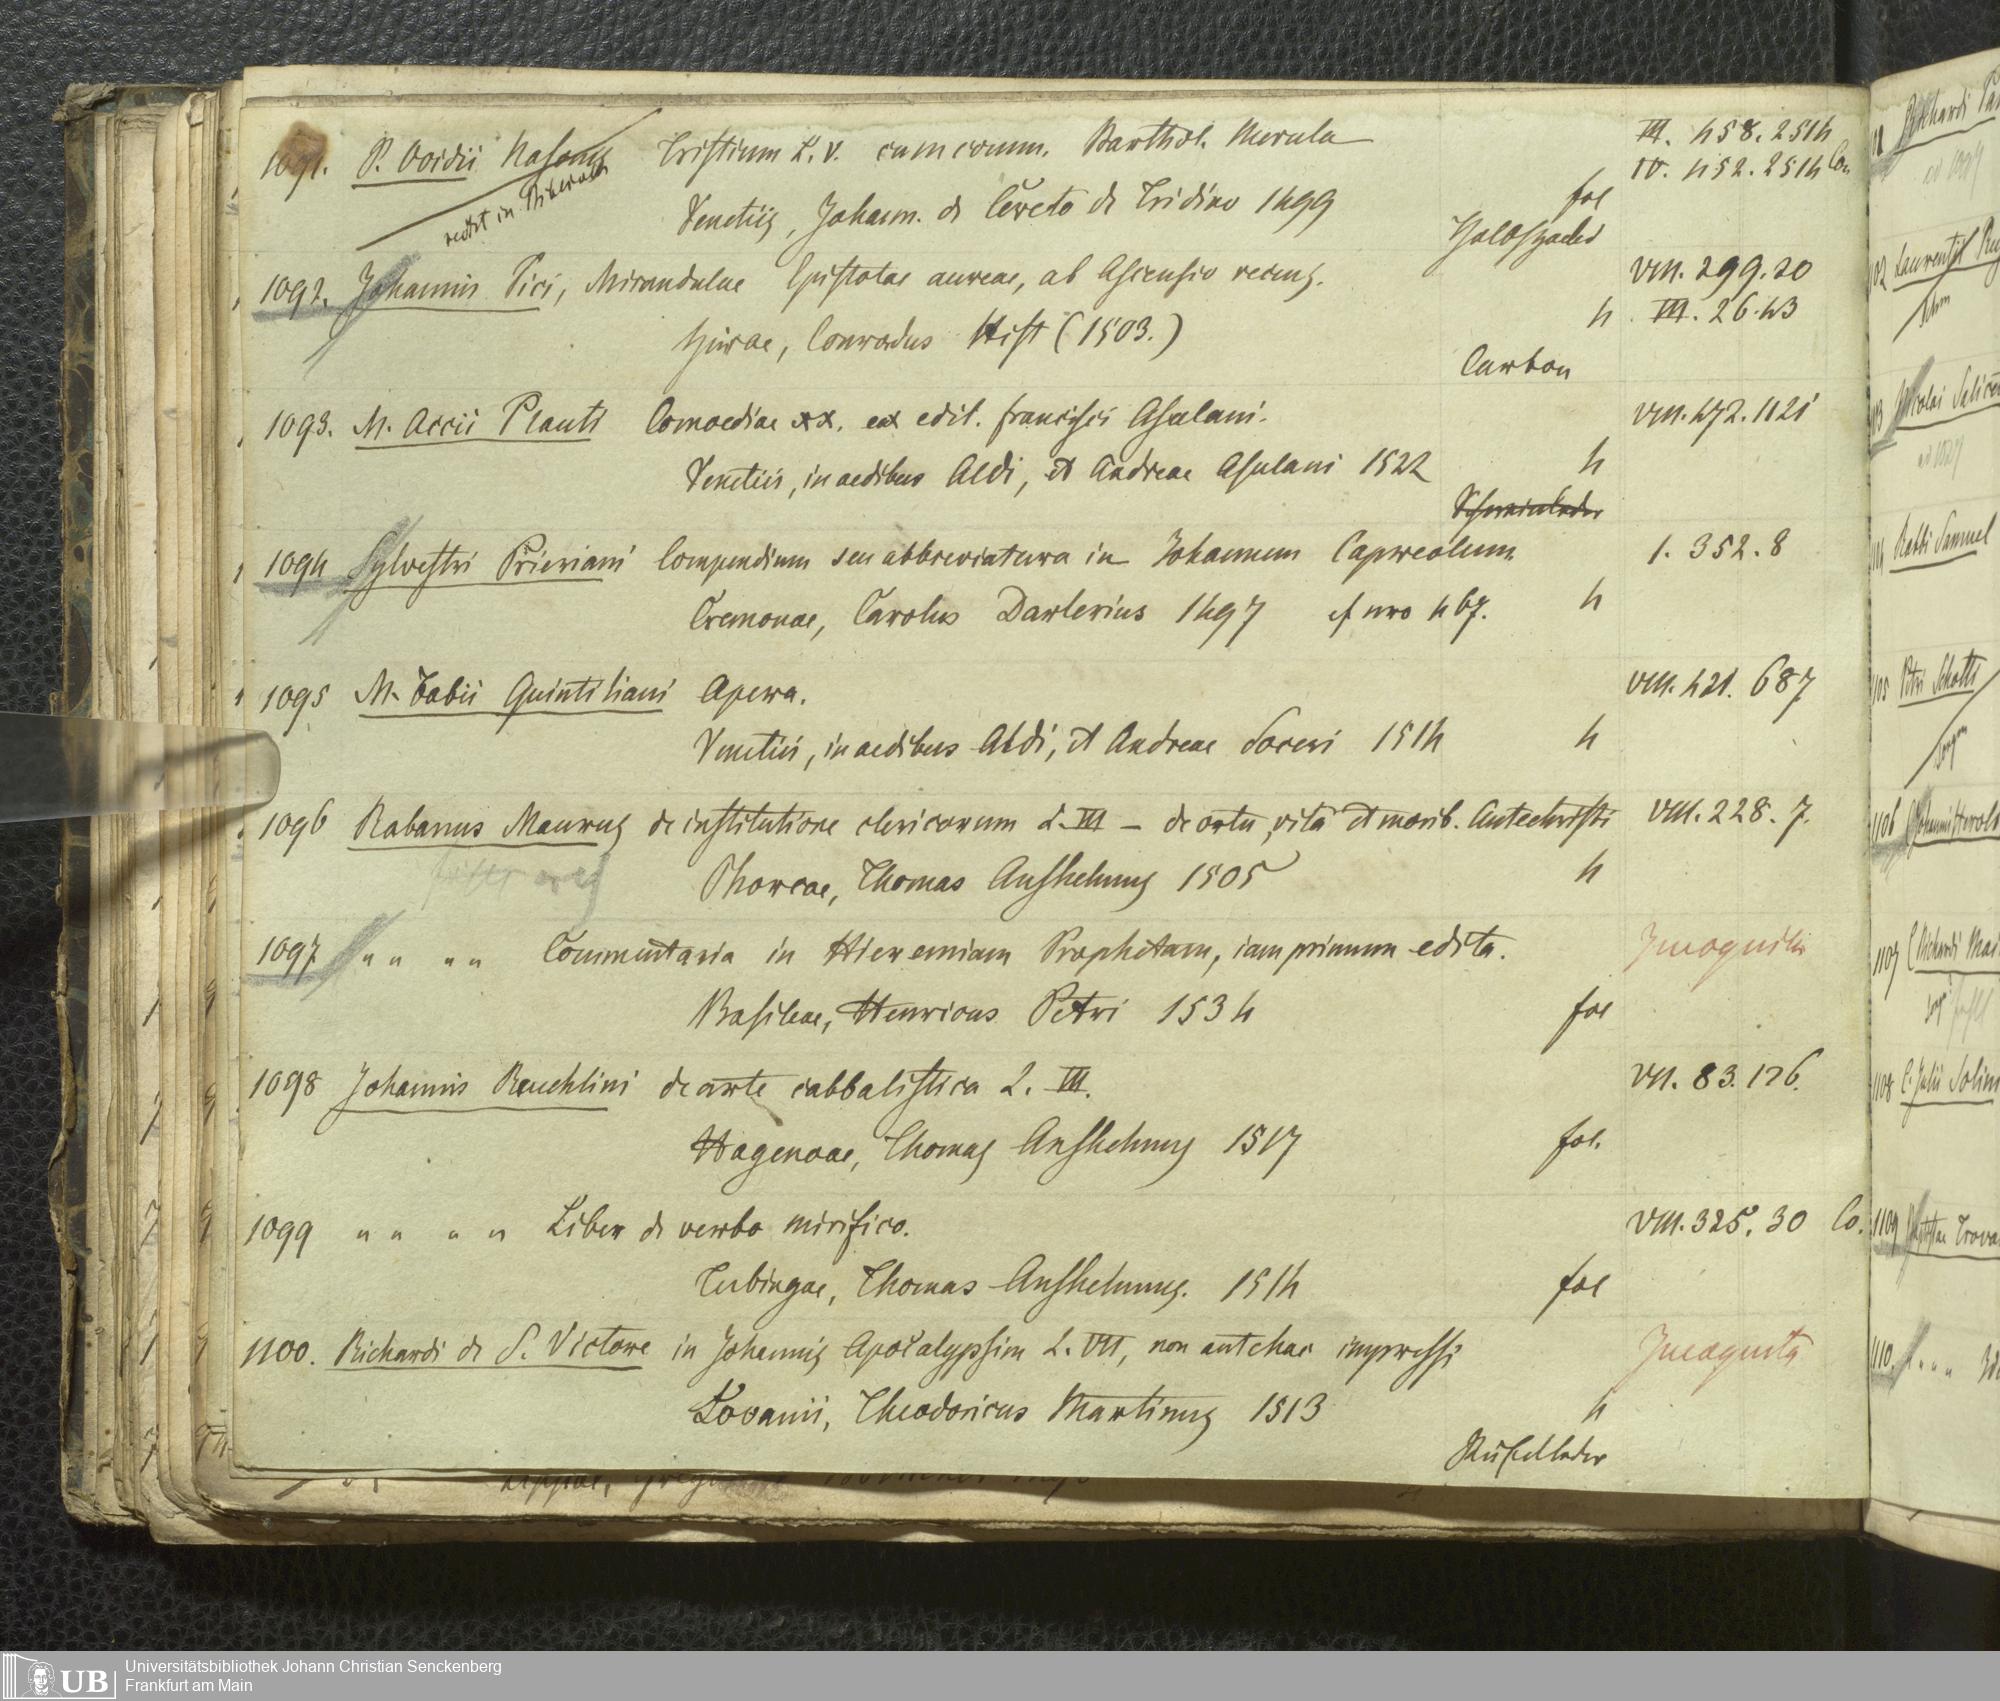 1091. P. Ovidii Nasonis Tristium L. V. cum comm. Barthol. Merula
III. 458. 2514
IV. 452. 2514 Con
Venetiis, Johann. de Cereto de Tridino 1499 fol
1092. Johannis Pici, Mirandulae Epistolae aureae, ab Ascensio recens.
VIII. 299. 20
Spirae, Conradus Hist (1503.) 4
VII. 26. 43
Carton
1093. M. Accii Plauti Comoediae XX. ex edit. Francisci Asulani.
VIII. 472. 1121
Venetiis, in aedibus Aldi, et Andreae Asulani 1522 4
Schweinleder
1094 Sylvestri Prieriani Compendium seu abbreviatura in Johannem Capreolum
1. 352. 8
Cremonae, Carolus Darlerius 1497 cf nro 467. 4
1095 M. Fabii Quintiliani Opera.
VIII. 421. 687
Venetiis, in aedibus Aldi, et Andreae Soceri 1514 4
1096 Rabanus Maurus de institutione clericorum L. III – de ortu, vita et morib. Antechristi
VIII. 228. 7.
Phorcae, Thomas Anshelmus 1505 4
1097 " " " " Commentaria in Hieremiam Prophetam, iam primum edita.
Incognita
Basileae, Henricus Petri 1534 fol
1098 Johannis Reuchlini de arte cabbalistica L. III.
VII. 83. 126.
Hagenoae, Thomas Anshelmus 1517 fol.
1099 " " " " Liber de verbo mirifico.
VIII. 325. 30 Co.
Tubingae, Thomas Anshelmus. 1514 fol
1100. Richardi de S. Victore in Johannis Apocalypsim L. VII, non antehac impressi
Incognita
Lovanii, Theodoricus Martinus 1513 4
Rüsselleder
Richardi
1102 Laurentii
Nicolai
Rabbi Samuel
1105 Petri Schotti
1106 Johannis Herolt
1107 Richardi
1108 C. Julii Solini
1109
1110. " " "
UB
Universitätsbibliothek Johann Christian Senckenberg
Frankfurt am Main